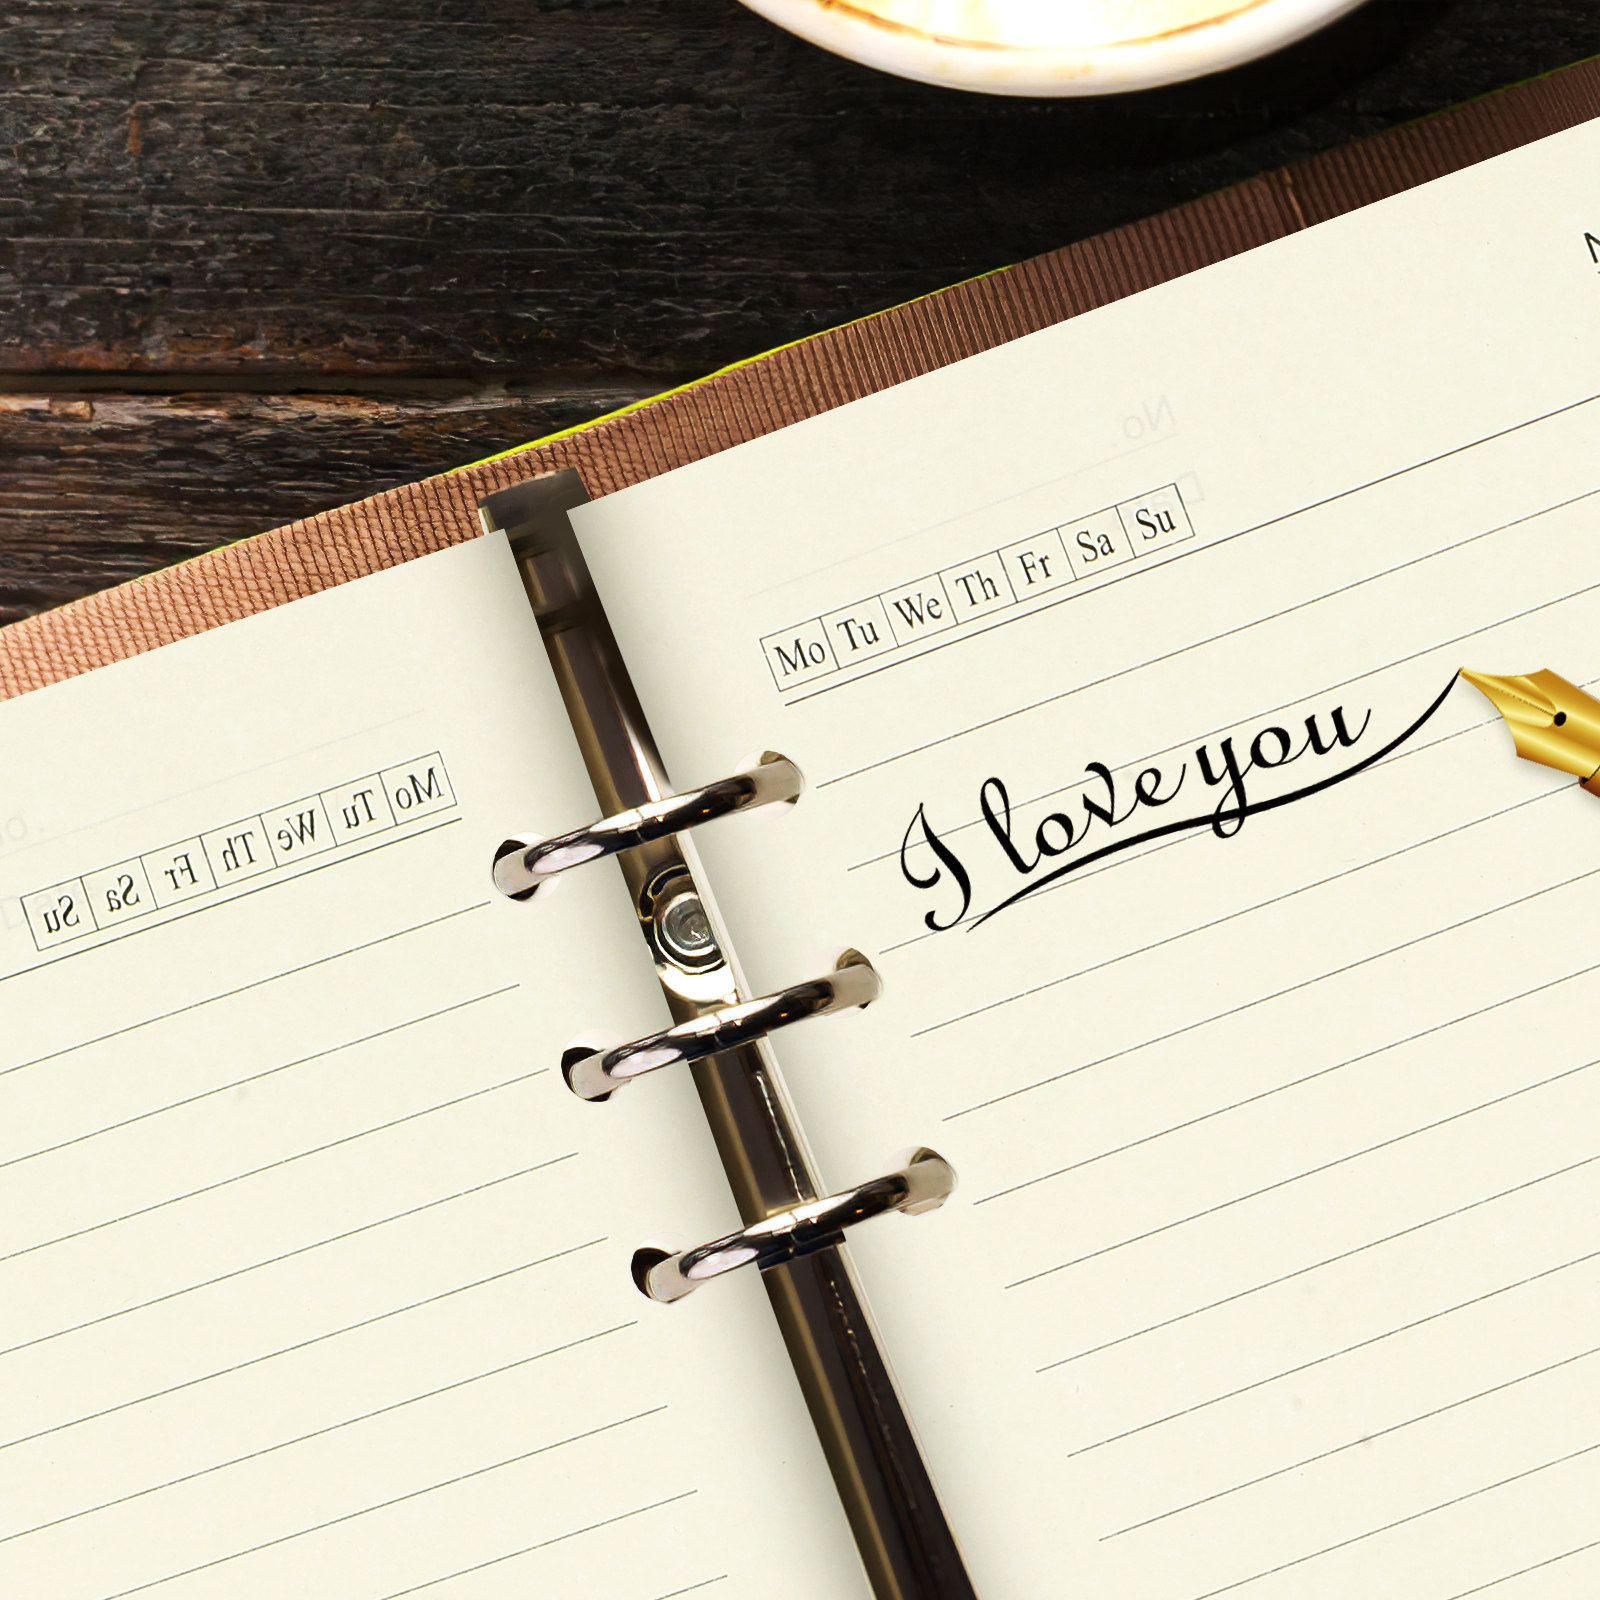 Mo Tu We Th Fr Sa Su
I love you
Mo Tu We Th Fr Sa Su
No.